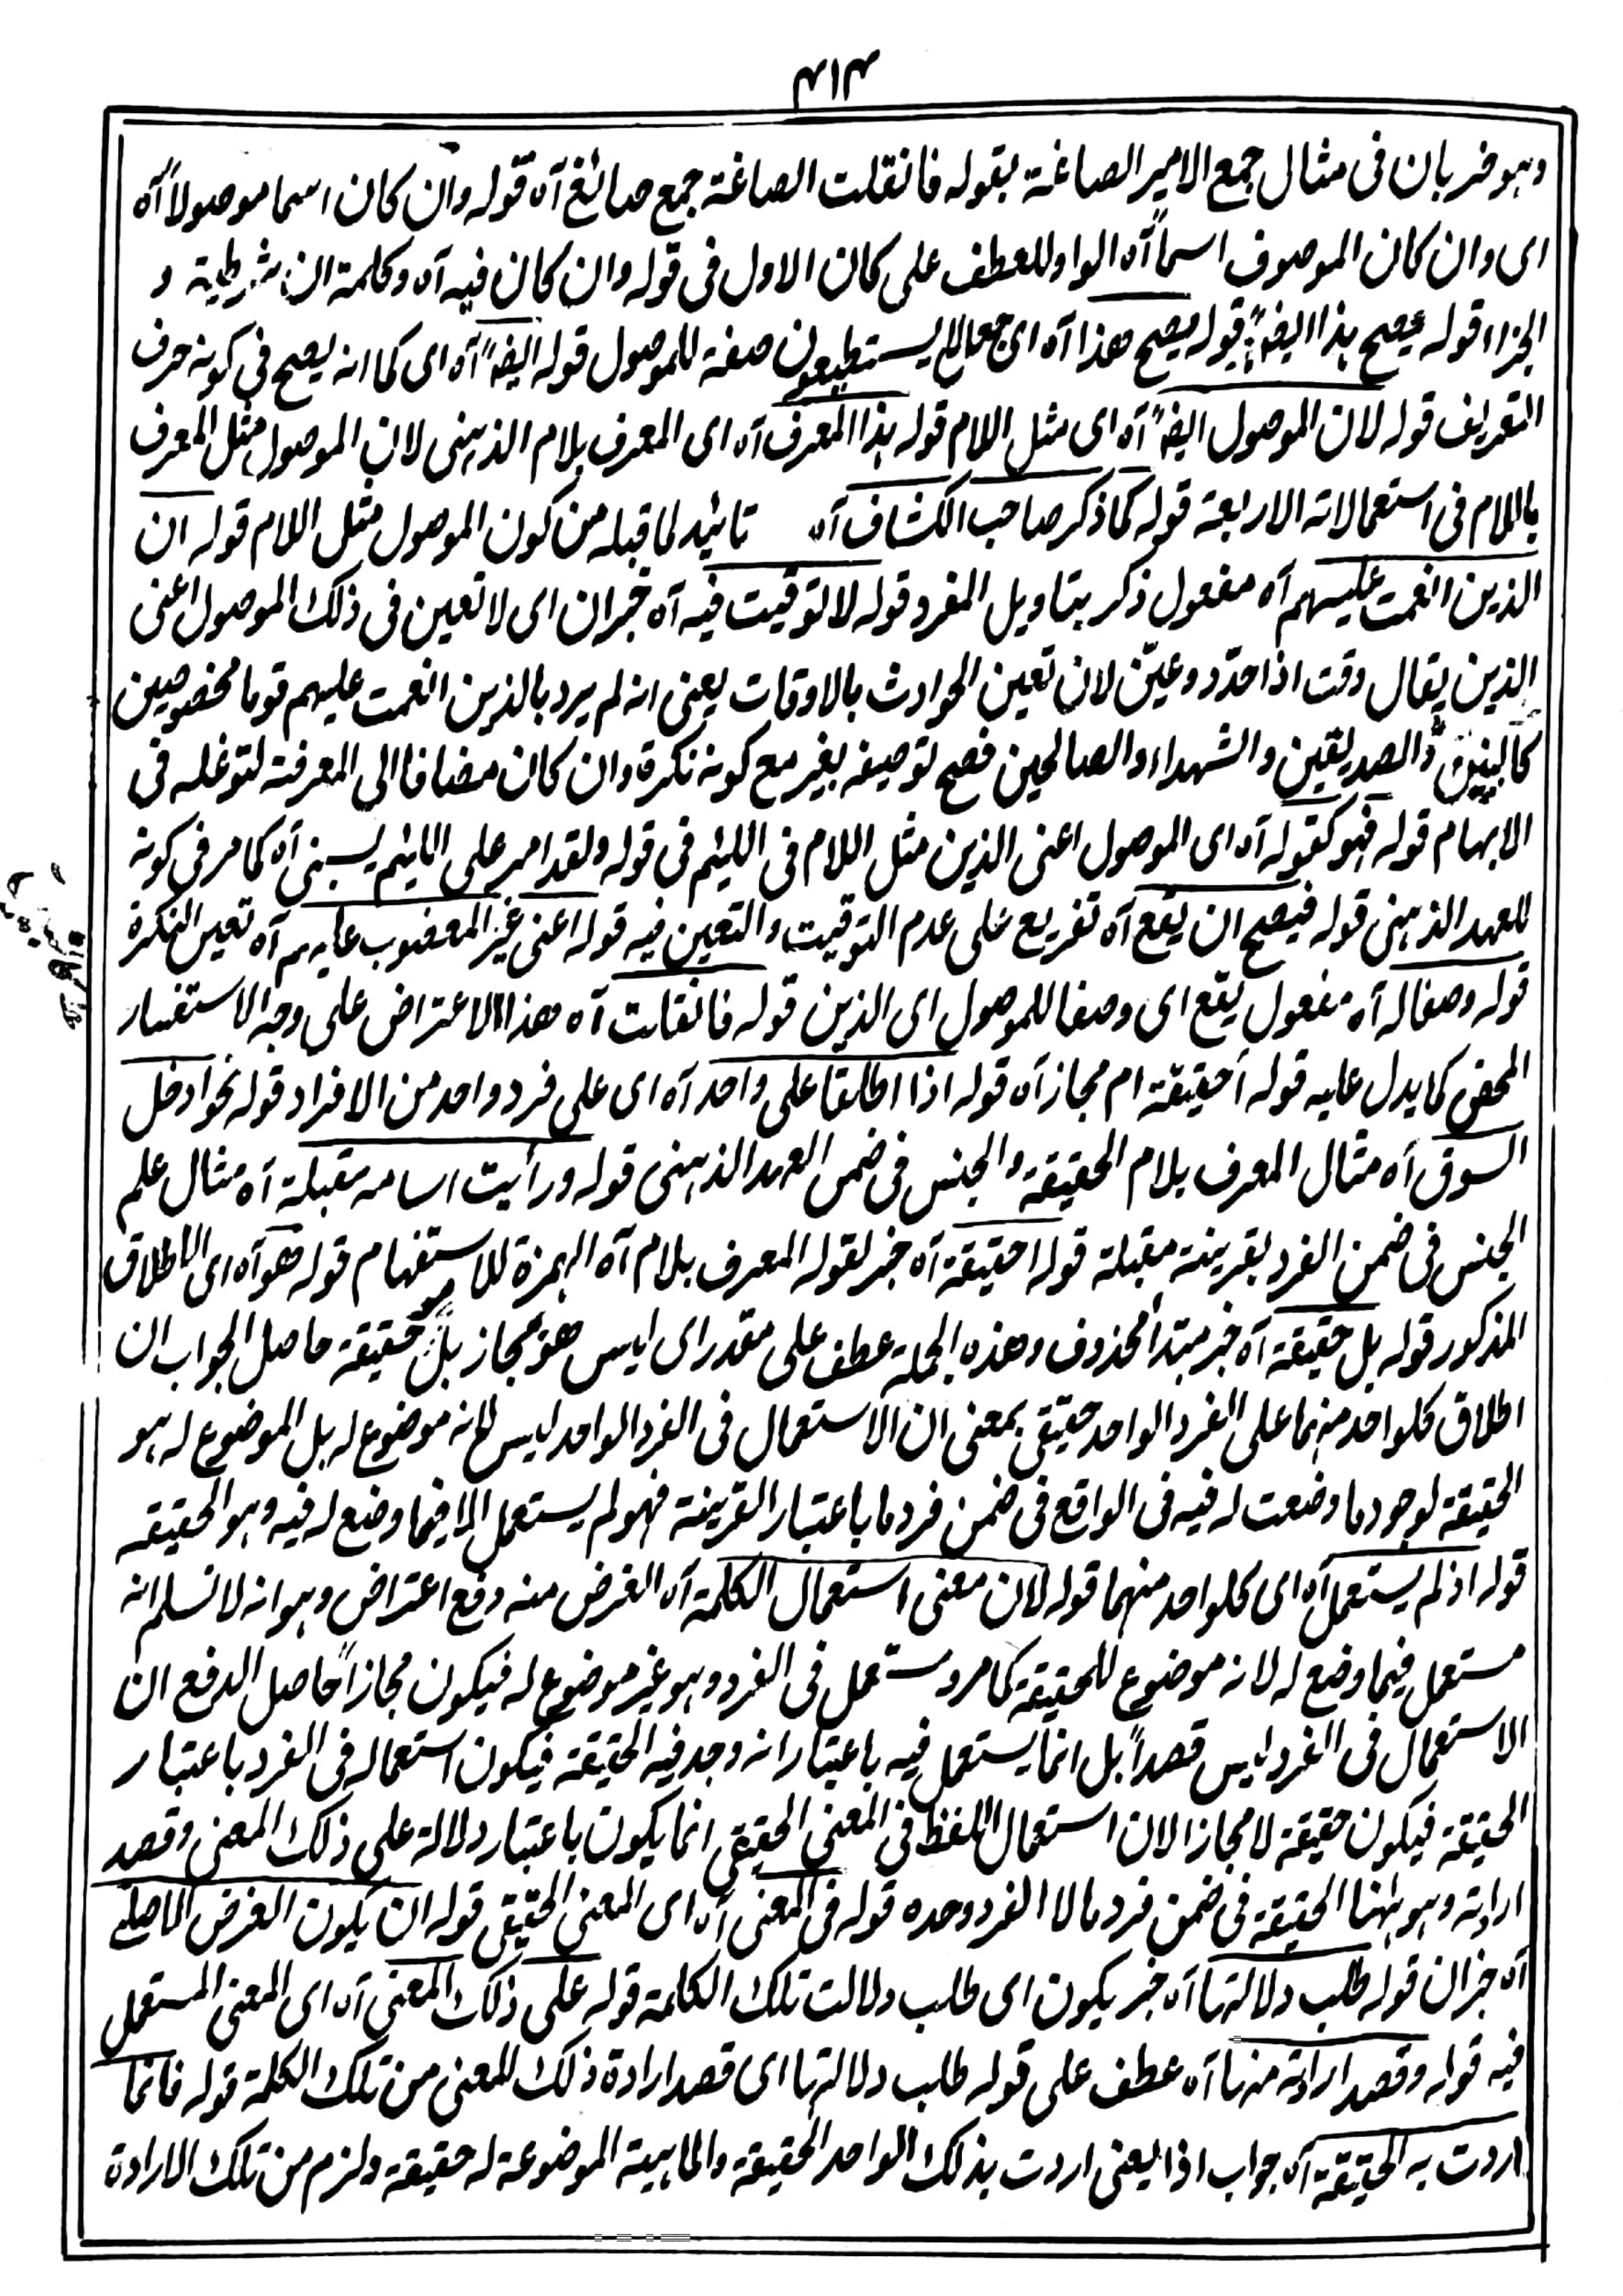 ٣١٣
وهو ضربان فى مثال جمع الامير الصاغة بقوله فانقلت الصاغة جمع صائغ آه قوله وان كان اسما موصولاً آه
اى وان كان الموصوف اسماً آه الواو للعطف على كان الاول فى قوله وان كان فيه آه وكلمة ان شرطية و
الجزاء قوله يصح هذا ايضاً قوله يصح هذا آه اى جعل لا يستطيعون صفة للموصول قوله ايضاً آه اى كما انه يصح فى كونه حرف
التعريف قوله لان الموصول ايضاً آه اى مثل اللام قوله هذا المعرف آه اى المعرف بلام الذهنى لان الموصول مثل المعرف
باللام فى استعمالاته الاربعة قوله كما ذكر صاحب الكشاف آه تائيد لما قبله من كون الموصول مثل اللام قوله ان
الذين انعمت عليهم آه مفعول ذكر بتاويل المفرد قوله لا توقيت فيه آه خبر ان اى لا تعين فى ذلك الموصول اعنى
الذين يقال وقت اذا حدّد وعيّن لان تعين الحوادث بالاوقات يعنى انه لم يرد بالذين انعمت عليهم قوما مخصوصين
كالنبيين والصديقين والشهداء والصالحين فصح توصيفه بغير مع كونه نكرة وان كان مضافا الى المعرفة لتوغله فى
الابهام قوله فهو كقوله آه اى الموصول اعنى الذين مثل اللام فى اللئيم فى قوله ولقد امر على اللئيم يسبنى آه كما مر فى كونه
للعهد الذهنى قوله فيصح ان يقع آه تفريع على عدم التوقيت والتعين فيه قوله اعنى غير المغضوب عليهم آه تعين النكرة
قوله وصفا له آه مفعول يقع اى وصفا للموصول اى الذين قوله فانقلت آه هذا الاعتراض على وجه الاستفسار
المحض كما يدل عليه قوله أحقيقة ام مجاز آه قوله اذا اطلقا على واحد آه اى على فرد واحد من الافراد قوله نحو ادخل
السوق آه مثال المعرف بلام الحقيقة والجنس فى ضمن العهد الذهنى قوله ورأيت اسامه مقبلة آه مثال علم
الجنس فى ضمن الفرد بقرينة مقبلة قوله احقيقة آه خبر لقوله المعرف بلام آه الهمزة للاستفهام قوله هو آه اى الاطلاق
المذكور قوله بل حقيقة آه خبر مبتدأ محذوف وهذه الجملة عطف على مقدر اى ليس هو مجاز بل هو حقيقة حاصل الجواب ان
اطلاق كلواحد منهما على الفرد الواحد حقيقى بمعنى ان الاستعمال فى الفرد الواحد ليس لانه موضوع له بل الموضوع له هو
الحقيقة لوجود ما وضعت له فيه فى الواقع فى ضمن فرد ما باعتبار القرينة فهو لم يستعمل الا فيما وضع له فيه وهو الحقيقه
قوله اذ لم يستعمل آه اى كلواحد منهما قوله لان معنى استعمال الكلمة آه الغرض منه دفع اعتراض وهو انه لا نسلم انه
مستعمل فيما وضع له لانه موضوع للحقيقة كما مر ومستعمل فى الفرد وهو غير موضوع له فيكون مجازاً حاصل الدفع ان
الاستعمال فى الفرد ليس قصداً بل انما يستعمل فيه باعتبار انه وجد فيه الحقيقة فيكون استعماله فى الفرد باعتبار
الحقيقة فيكون حقيقة لا مجازا لان استعمال اللفظ فى المعنى الحقيقى انما يكون باعتبار دلالة على ذلك المعنى وقصد
ارادته وهو ههنا الحقيقة فى ضمن فرد ما لا الفرد وحده قوله فى المعنى آه اى المعنى الحقيقى قوله ان يكون الغرض الاصلى
آه خبر ان قوله طلب دلالتها آه خبر يكون اى طلب دلالت تلك الكلمة قوله على ذلك المعنى آه اى المعنى المستعمل
فيه قوله وقصد ارادته منها آه عطف على قوله طلب دلالتها اى قصد ارادة ذلك المعنى من تلك الكلمة قوله فانما
اردت به الحقيقة آه جواب اذا يعنى اردت بذلك الواحد الحقيقة والماهية الموضوعة له حقيقة ولزم من تلك الارادة